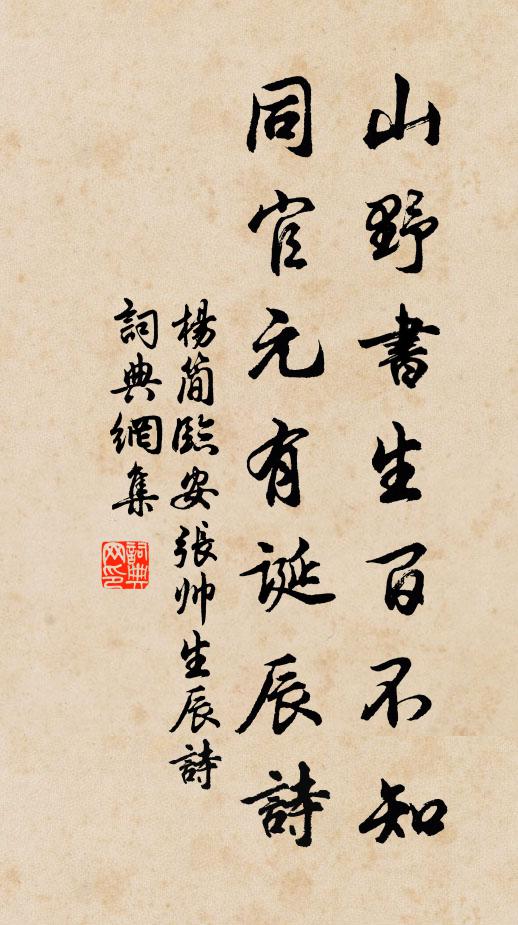 山野書生百不知
同官元有誕辰詩
楊簡臨安張帅生辰詩
詞典網集
詞典网印